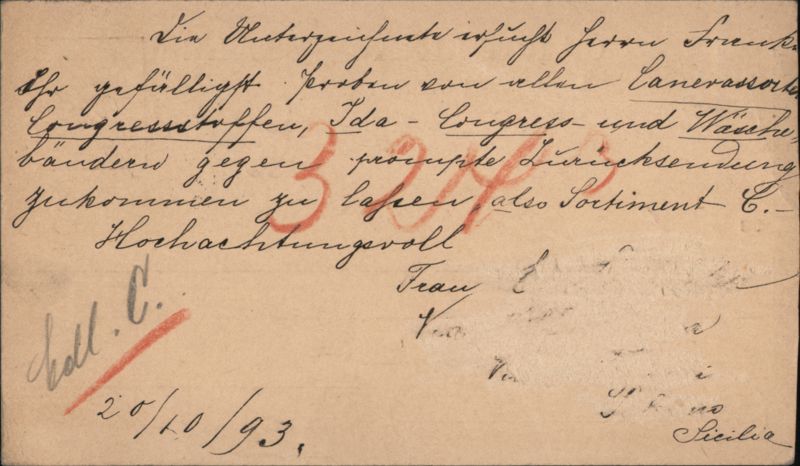 Die Unterzeichnete ersucht Herrn Frank-
Ihr gefälligst Proben von allen Canevassorten
Congressstoffen, Ida- Congress- und Wäsche-
bändern gegen prompte Zurücksendung
zukommen zu lassen, also Sortiment C.-
Hochachtungsvoll
Frau
Sicilia
Edl. C.
20/10/93.